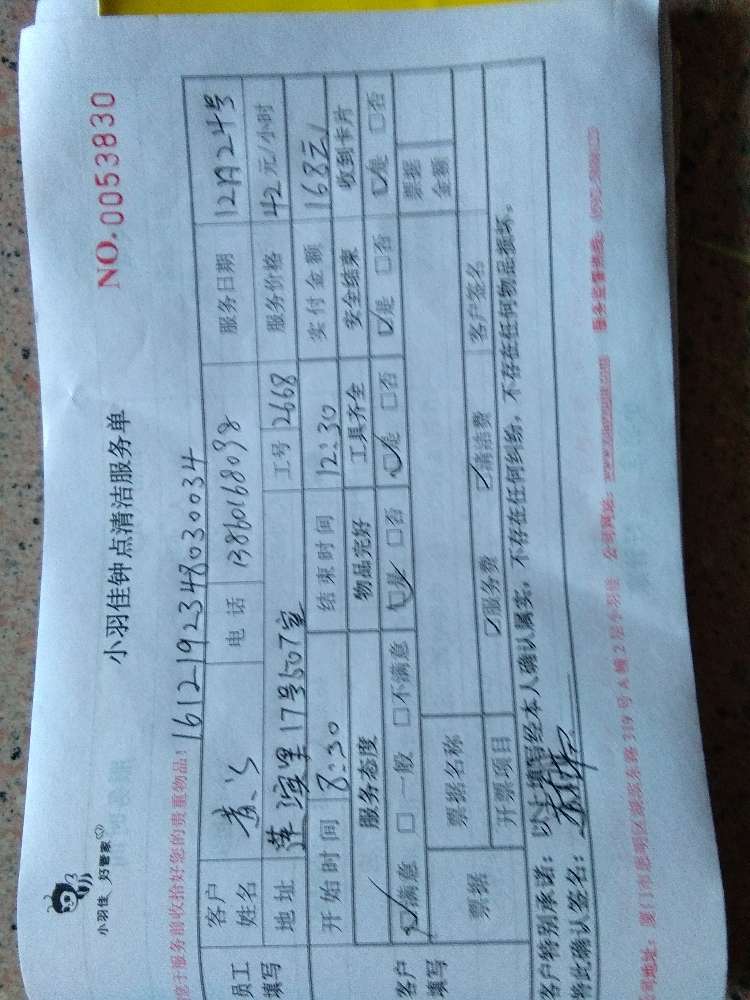 小羽佳 好管家
小羽佳钟点清洁服务单
NO.0053830
于服务前收拾好您的贵重物品!
1612192348030034
员工填写
客户姓名 黄 电话 13860168038 服务日期 12月24号
地址 萍滨里17号507室 工号 2668 服务价格 42元/小时
开始时间 8:30 结束时间 12:30 实付金额 168元
客户填写
服务态度 物品完好 工具齐全 安全结束 收到卡片
☑满意 □一般 □不满意 ☑是 □否 ☑是 □否 ☑是 □否 ☑是 □否
票据 票据名称 票据金额
开票项目 ☑服务费 ☑清洁费 客户签名
客户特别承诺: 以上填写经本人确认属实,不存在任何纠纷,不存在任何物品损坏。
特此确认签名:
司地址: 厦门市思明区湖滨东路319号A幢2层小羽佳 公司网站: 服务监督热线: